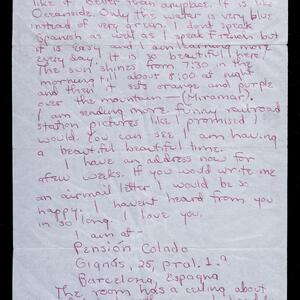 like it better than anyplace. It is like
Oceanside. Only the water is very blue
instead of very
Spanish as well as I speak French but
it is easy and I am learning more
every day. It is so beautiful here.
The sun shines from 7:30 in the
morning till about 8:00 at night
and then it sets orange and purple
over the mountain (Miramar).
I am sending more funny railroad
station pictures like I promised I
would. You can see I am having
a beautiful beautiful time.
I have an address now for
a few weeks. If you would write me
an airmail letter I would be so
happy; I havent heard from you
in so long. I love you.
I am at —
Pensión Colado
Gignás, 25, pral. 1.ª
Barcelona, Espagna
The room has a ceiling about